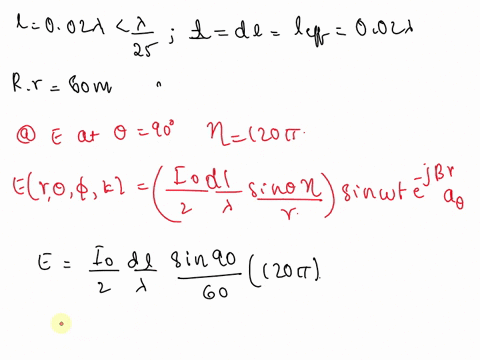 l=0.02λ < λ/25 ; l = dl = leff = 0.02λ
R.r = 60m
ⓐ E at θ = 90° η = 120π.
E(r,θ,ϕ,t) = (I0/2 dl/λ sinθ η/r) sinωt e^-jβr aθ
E = I0/2 dl/λ sin90/60 (120π)